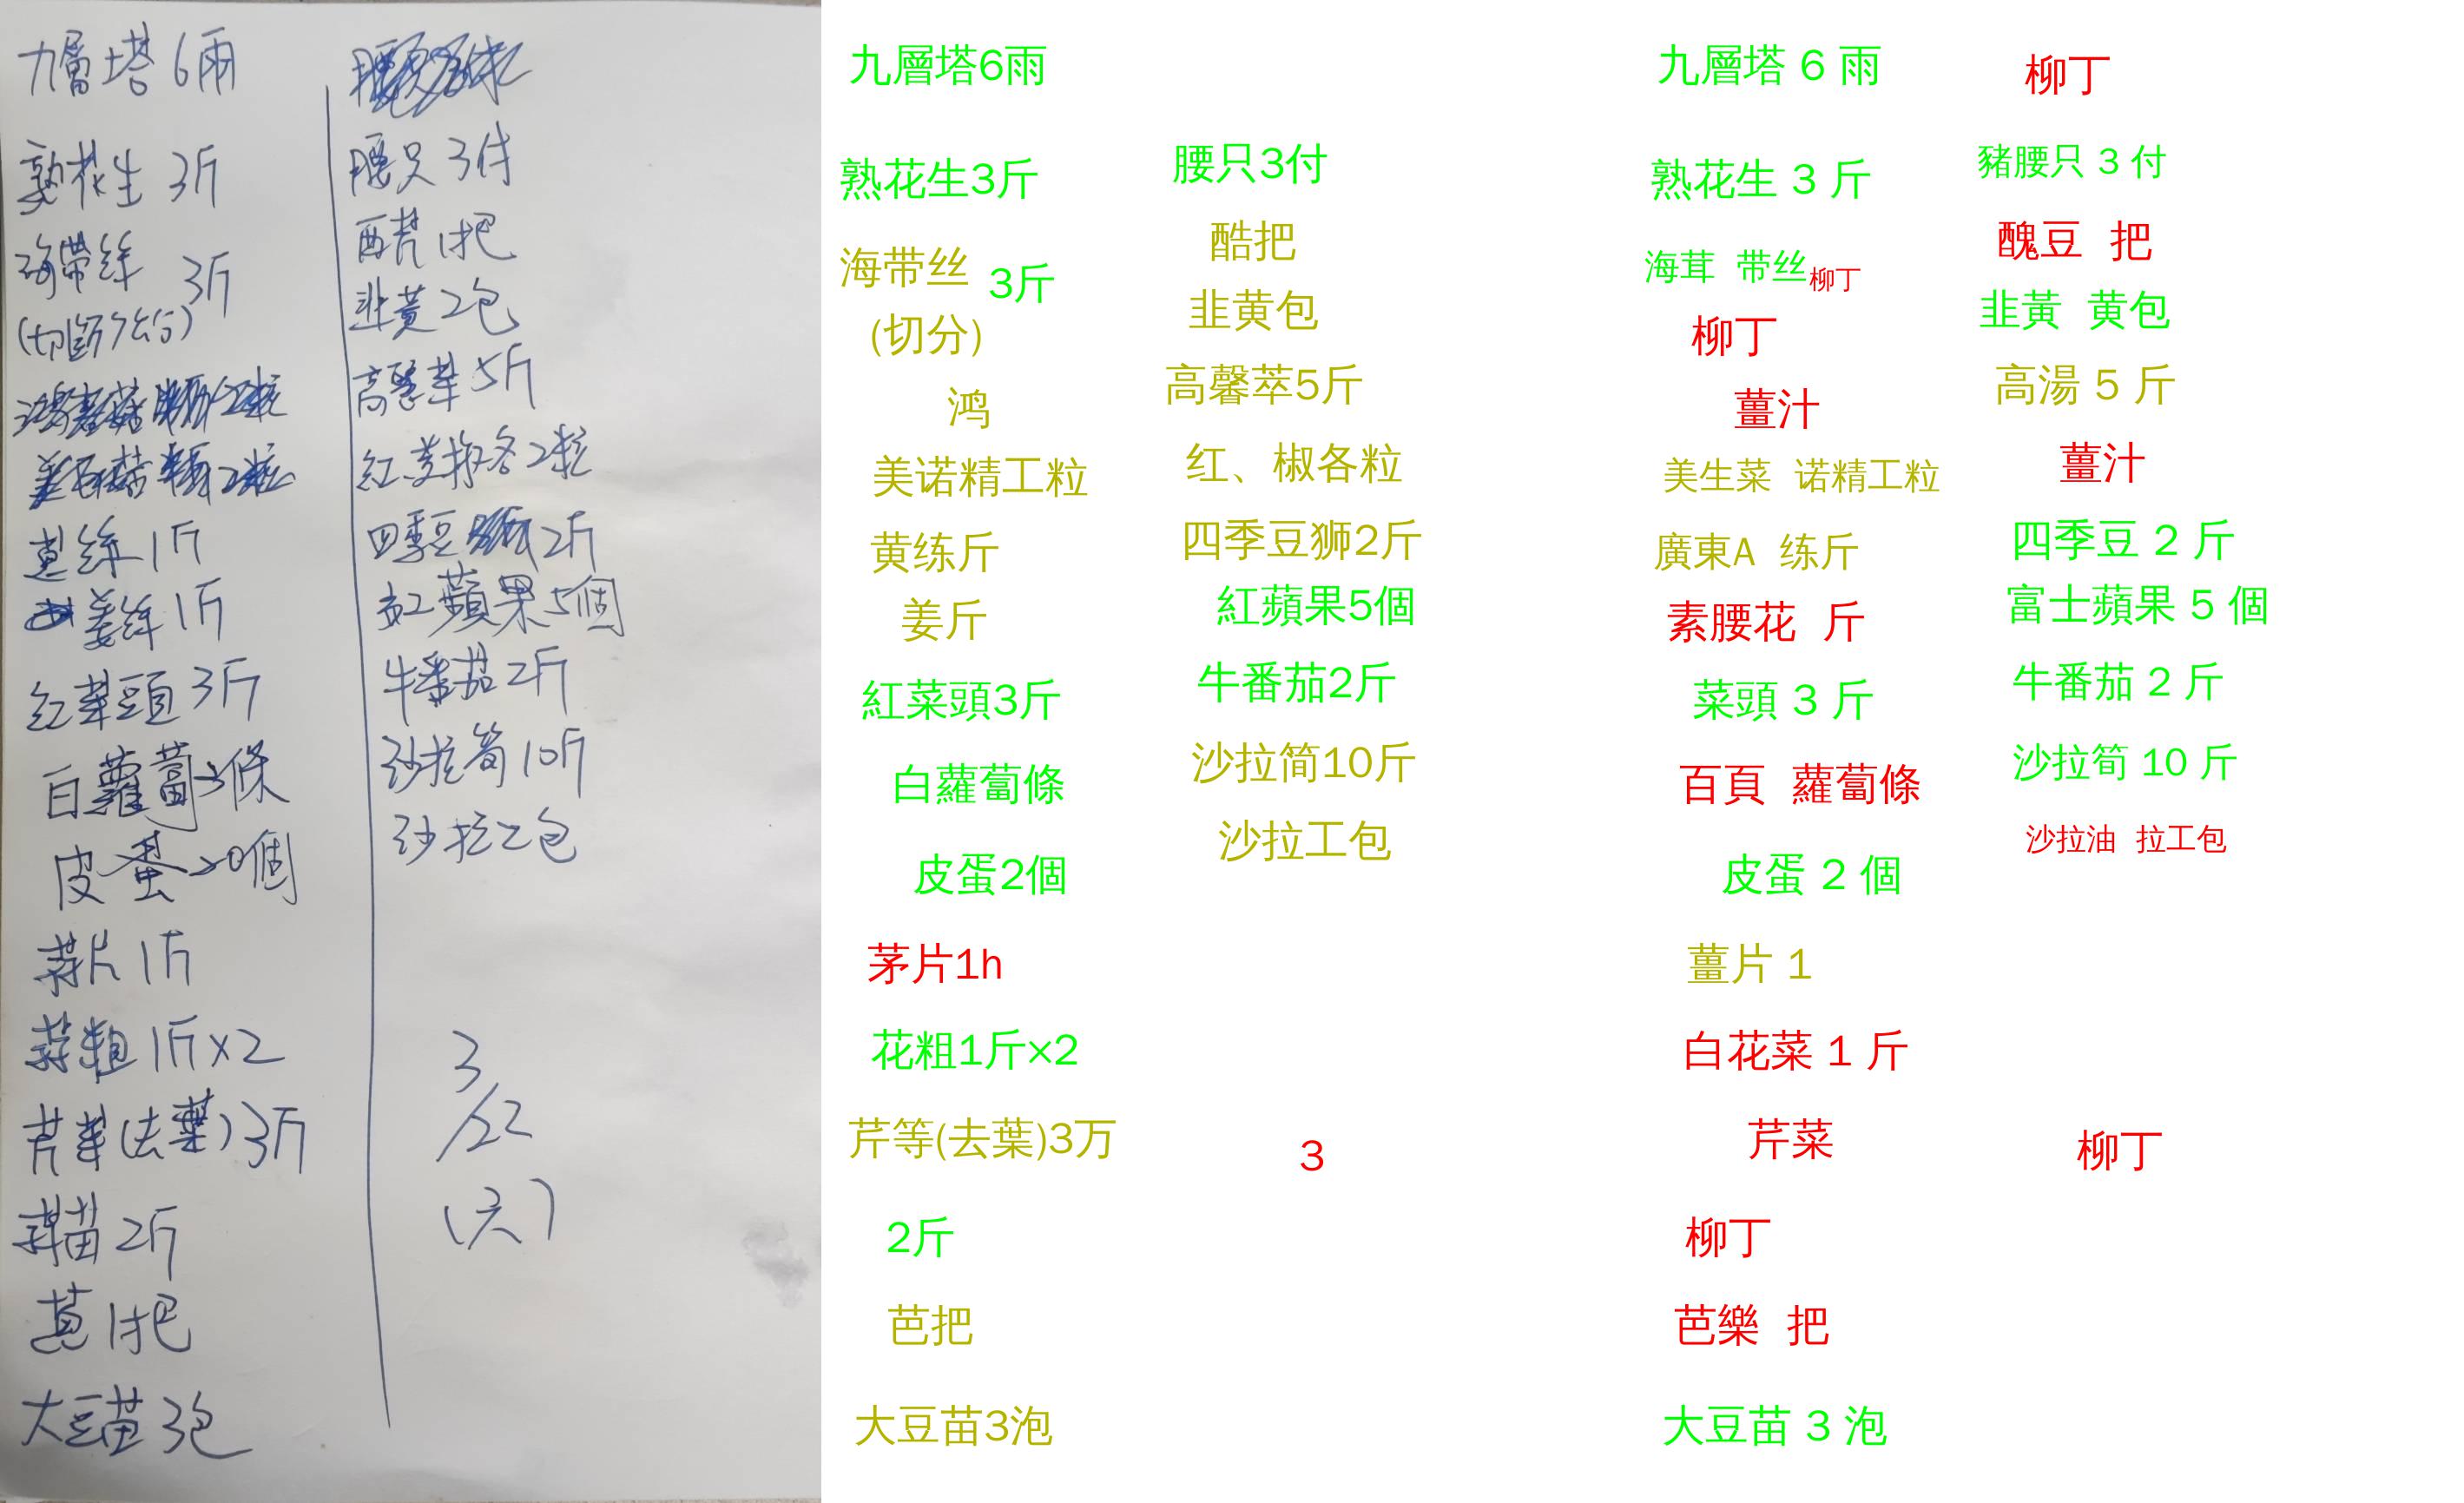 九層塔 6兩
熟花生 3斤
海帶絲 3斤
(切斷分行)
蔥絲 1斤
姜絲 1斤
紅菜頭 3斤
白蘿蔔 3條
皮蛋 20個
蒜片 1斤
蒜粗 1斤x2
芹菜(去葉) 3斤
蒜苗 2斤
蔥 1把
大豆苗 3包
腰只 3付
西芹 1把
韭黃 2包
高麗菜 5斤
紅黃椒各2粒
四季豆 2斤
紅蘋果 5個
牛番茄 2斤
沙拉筍 10斤
沙拉 2包
3/22
(六)
九層塔6雨
熟花生3斤
海带丝 3斤
(切分)
鸿
美诺精工粒
黄练斤
姜斤
紅菜頭3斤
白蘿蔔條
皮蛋2個
茅片1h
花粗1斤×2
芹等(去葉)3万
2斤
芭把
大豆苗3泡
腰只3付
酷把
韭黄包
高馨萃5斤
红、椒各粒
四季豆狮2斤
紅蘋果5個
牛番茄2斤
沙拉简10斤
沙拉工包
3
九層塔 6 雨
熟花生 3 斤
海茸 带丝 柳丁
柳丁
薑汁
美生菜 诺精工粒
廣東A 练斤
素腰花 斤
菜頭 3 斤
百頁 蘿蔔條
皮蛋 2 個
薑片 1
白花菜 1 斤
芹菜
柳丁
芭樂 把
大豆苗 3 泡
柳丁
豬腰只 3 付
醜豆 把
韭黃 黄包
高湯 5 斤
薑汁
四季豆 2 斤
富士蘋果 5 個
牛番茄 2 斤
沙拉筍 10 斤
沙拉油 拉工包
柳丁